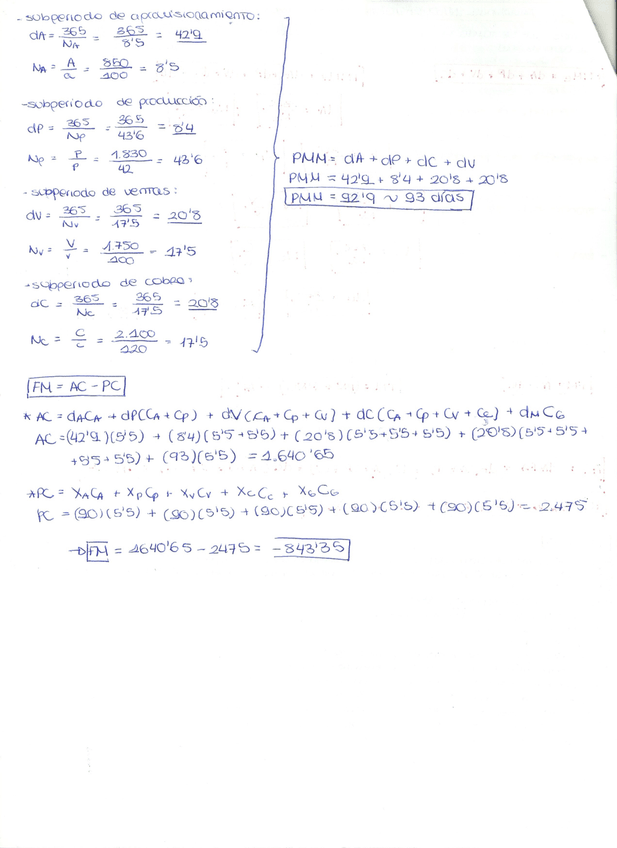 - subperiodo de aprovisionamiento:
dA = 365/NA = 365/8'5 = 42'9
NA = A/a = 850/100 = 8'5
- subperiodo de producción:
dP = 365/Np = 365/43'6 = 8'4
Np = P/P = 1.830/42 = 43'6
- subperiodo de ventas:
dV = 365/Nv = 365/17'5 = 20'8
Nv = V/v = 1.750/100 = 17'5
- subperiodo de cobro:
dC = 365/Nc = 365/17'5 = 20'8
Nc = C/c = 2.100/120 = 17'5
PMM = dA + dP + dC + dV
PMM = 42'9 + 8'4 + 20'8 + 20'8
PMM = 92'9 ~ 93 días
FM = AC - PC
* AC = dACA + dP(CA + Cp) + dV(CA + Cp + Cv) + dC(CA + Cp + Cv + Cc) + dMCG
AC = (42'9)(5'5) + (8'4)(5'5 + 5'5) + (20'8)(5'5 + 5'5 + 5'5) + (20'8)(5'5 + 5'5 +
+ 5'5 + 5'5) + (93)(5'5) = 1.640'65
* PC = XACA + XpCp + XvCv + XcCc + XGCG
PC = (90)(5'5) + (90)(5'5) + (90)(5'5) + (90)(5'5) + (90)(5'5) = 2.475
→ FM = 1640'65 - 2475 = -843'35